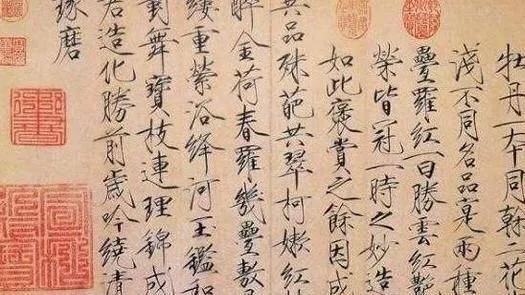 牡丹一本同榦二花
淺不同名品寔兩種
疊羅紅一曰勝雲紅艷
榮皆冠一時之妙造
如此褒賞之餘因成
異品殊葩共翠柯嫩紅
醉金荷春羅幾疊敷
縷重縈浴絳河玉鑑和
對舞寶枝連理錦成
君造化勝前歲吟繞清
琢磨